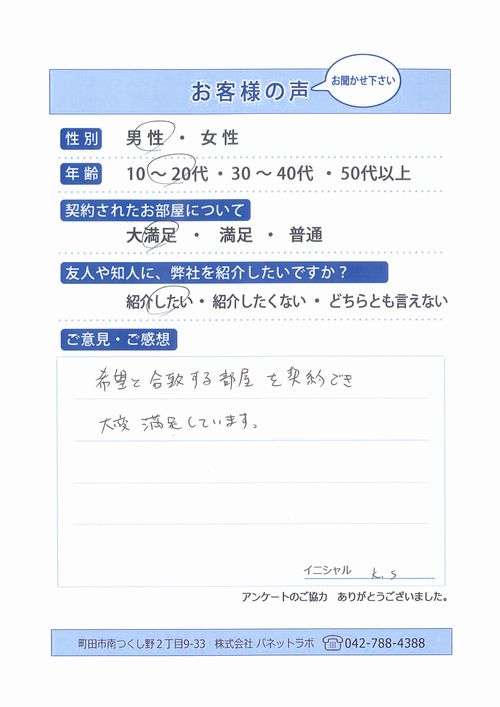 お客様の声
お聞かせ下さい
性別 男性 ・ 女性
年齢 10～20代 ・ 30～40代 ・ 50代以上
契約されたお部屋について
大満足 ・ 満足 ・ 普通
友人や知人に、弊社を紹介したいですか？
紹介したい ・ 紹介したくない ・ どちらとも言えない
ご意見・ご感想
希望と合致する部屋を契約でき
大変満足しています。
イニシャル K.S
アンケートのご協力　ありがとうございました。
町田市南つくし野２丁目9-33　株式会社 パネットラボ ☏042-788-4388